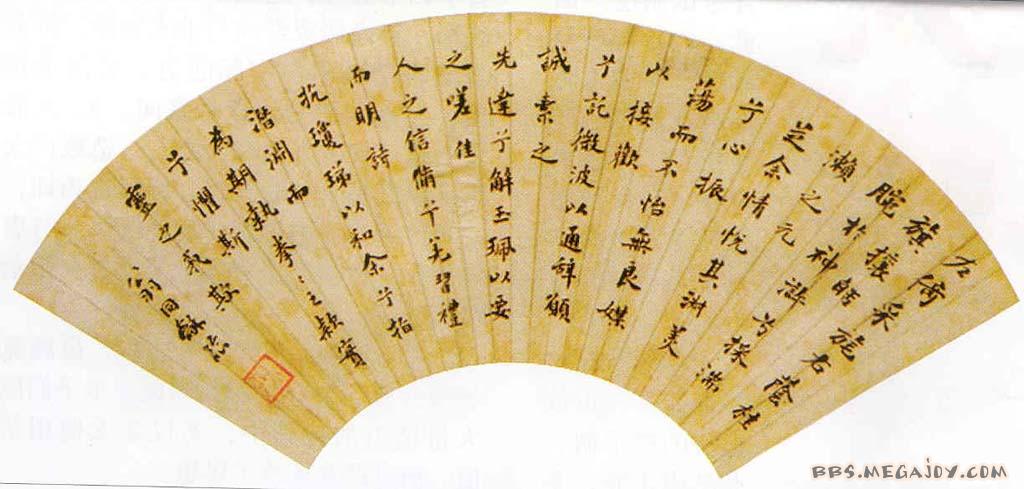 左倚采旄右蔭桂
旗攘皓
腕於神滸兮採湍
瀨之元
芝余情悅其淑美
兮心振
蕩而不怡無良媒
以接歡
兮託微波以通辭願
誠素之
先達兮解玉珮以要
之嗟佳
人之信脩兮羌習禮
而明詩
抗瓊珶以和余兮指
潛淵而
為期執拳〻之款實
兮懼斯
靈之我欺
翁同龢
BBS.MEGAJOY.COM